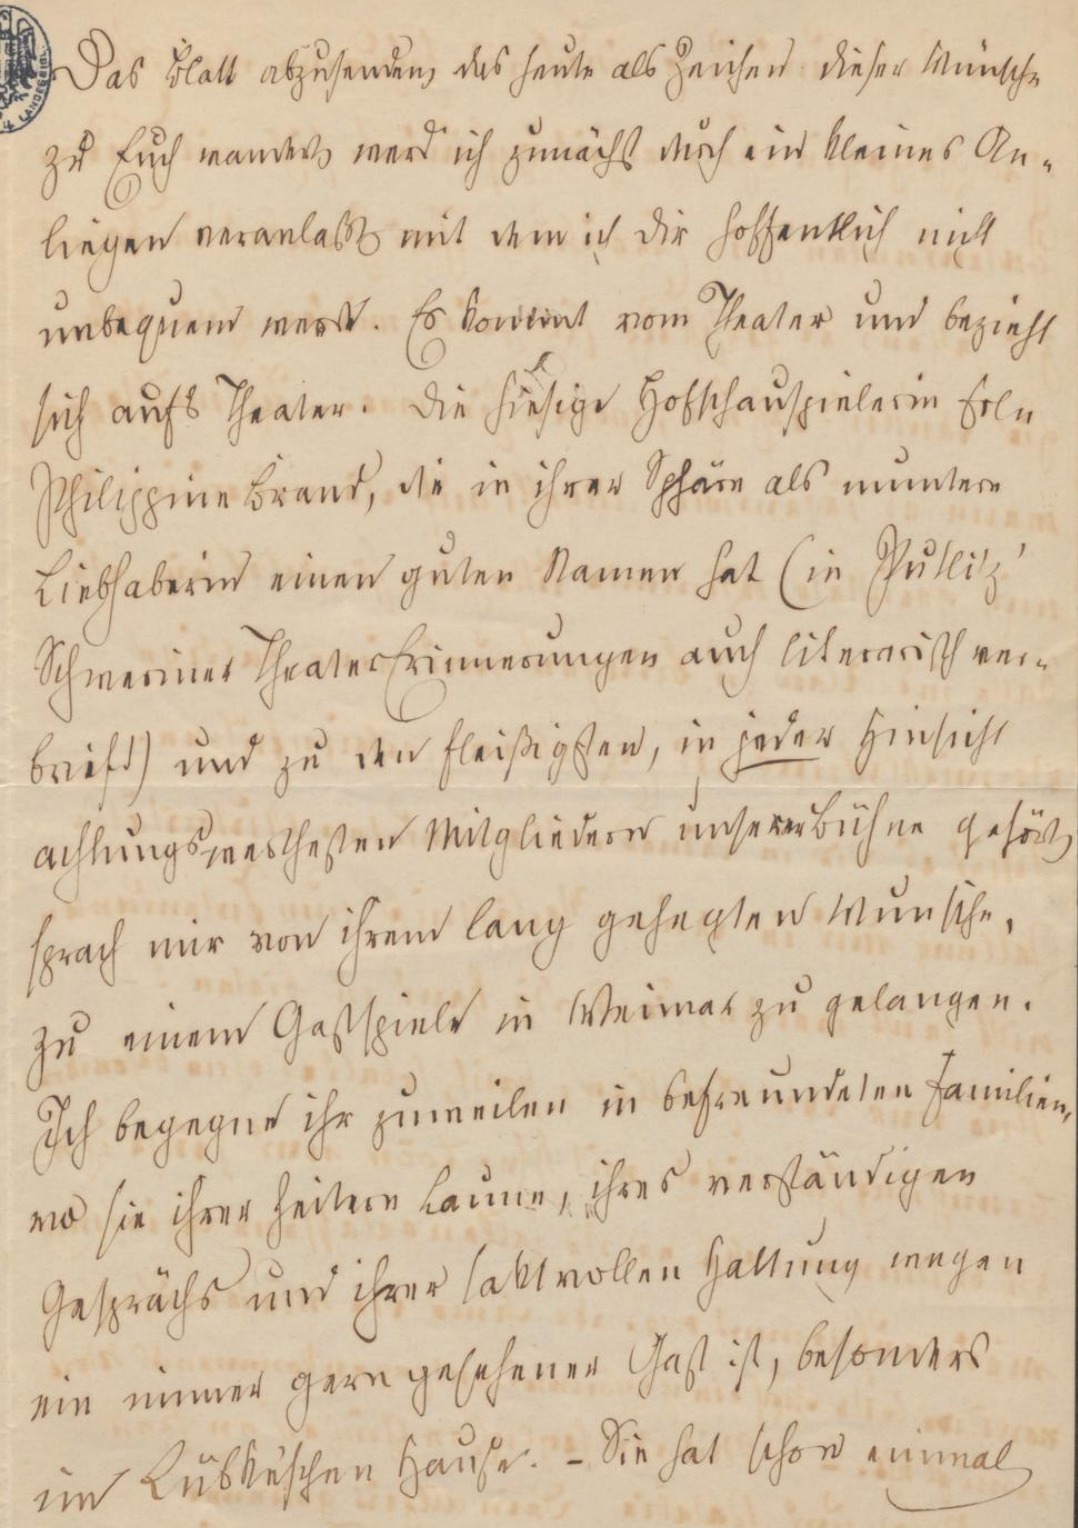 Das Blatt abzusenden, das heute als Zeichen dieser Wünsche
zu Euch wandert, werd ich zunächst durch ein kleines An-
liegen veranlaßt, mit dem ich Dir hoffentlich nicht
unbequem werde. Es kommt vom Theater und bezieht
sich aufs Theater. Die hiesige Hofschauspielerin Frln
Philippine Brand, die in ihrer Sphäre als muntere
Liebhaberin einen guten Namen hat (in Putlitz'
Schweriner TheaterErinnerungen auch literarisch ver-
brieft) und zu den fleißigsten, in jeder Hinsicht
achtungswerthesten Mitgliedern unserer Bühne gehört,
sprach mir von ihrem lang gehegten Wunsche,
zu einem Gastspiele in Weimar zu gelangen.
Ich begegne ihr zuweilen in befreundeten Familien,
wo sie ihrer heitern Laune, ihres verständigen
Gesprächs und ihrer taktvollen Haltung wegen
ein immer gern gesehener Gast ist, besonders
im Lübke'schen Hause. - Sie hat schon einmal